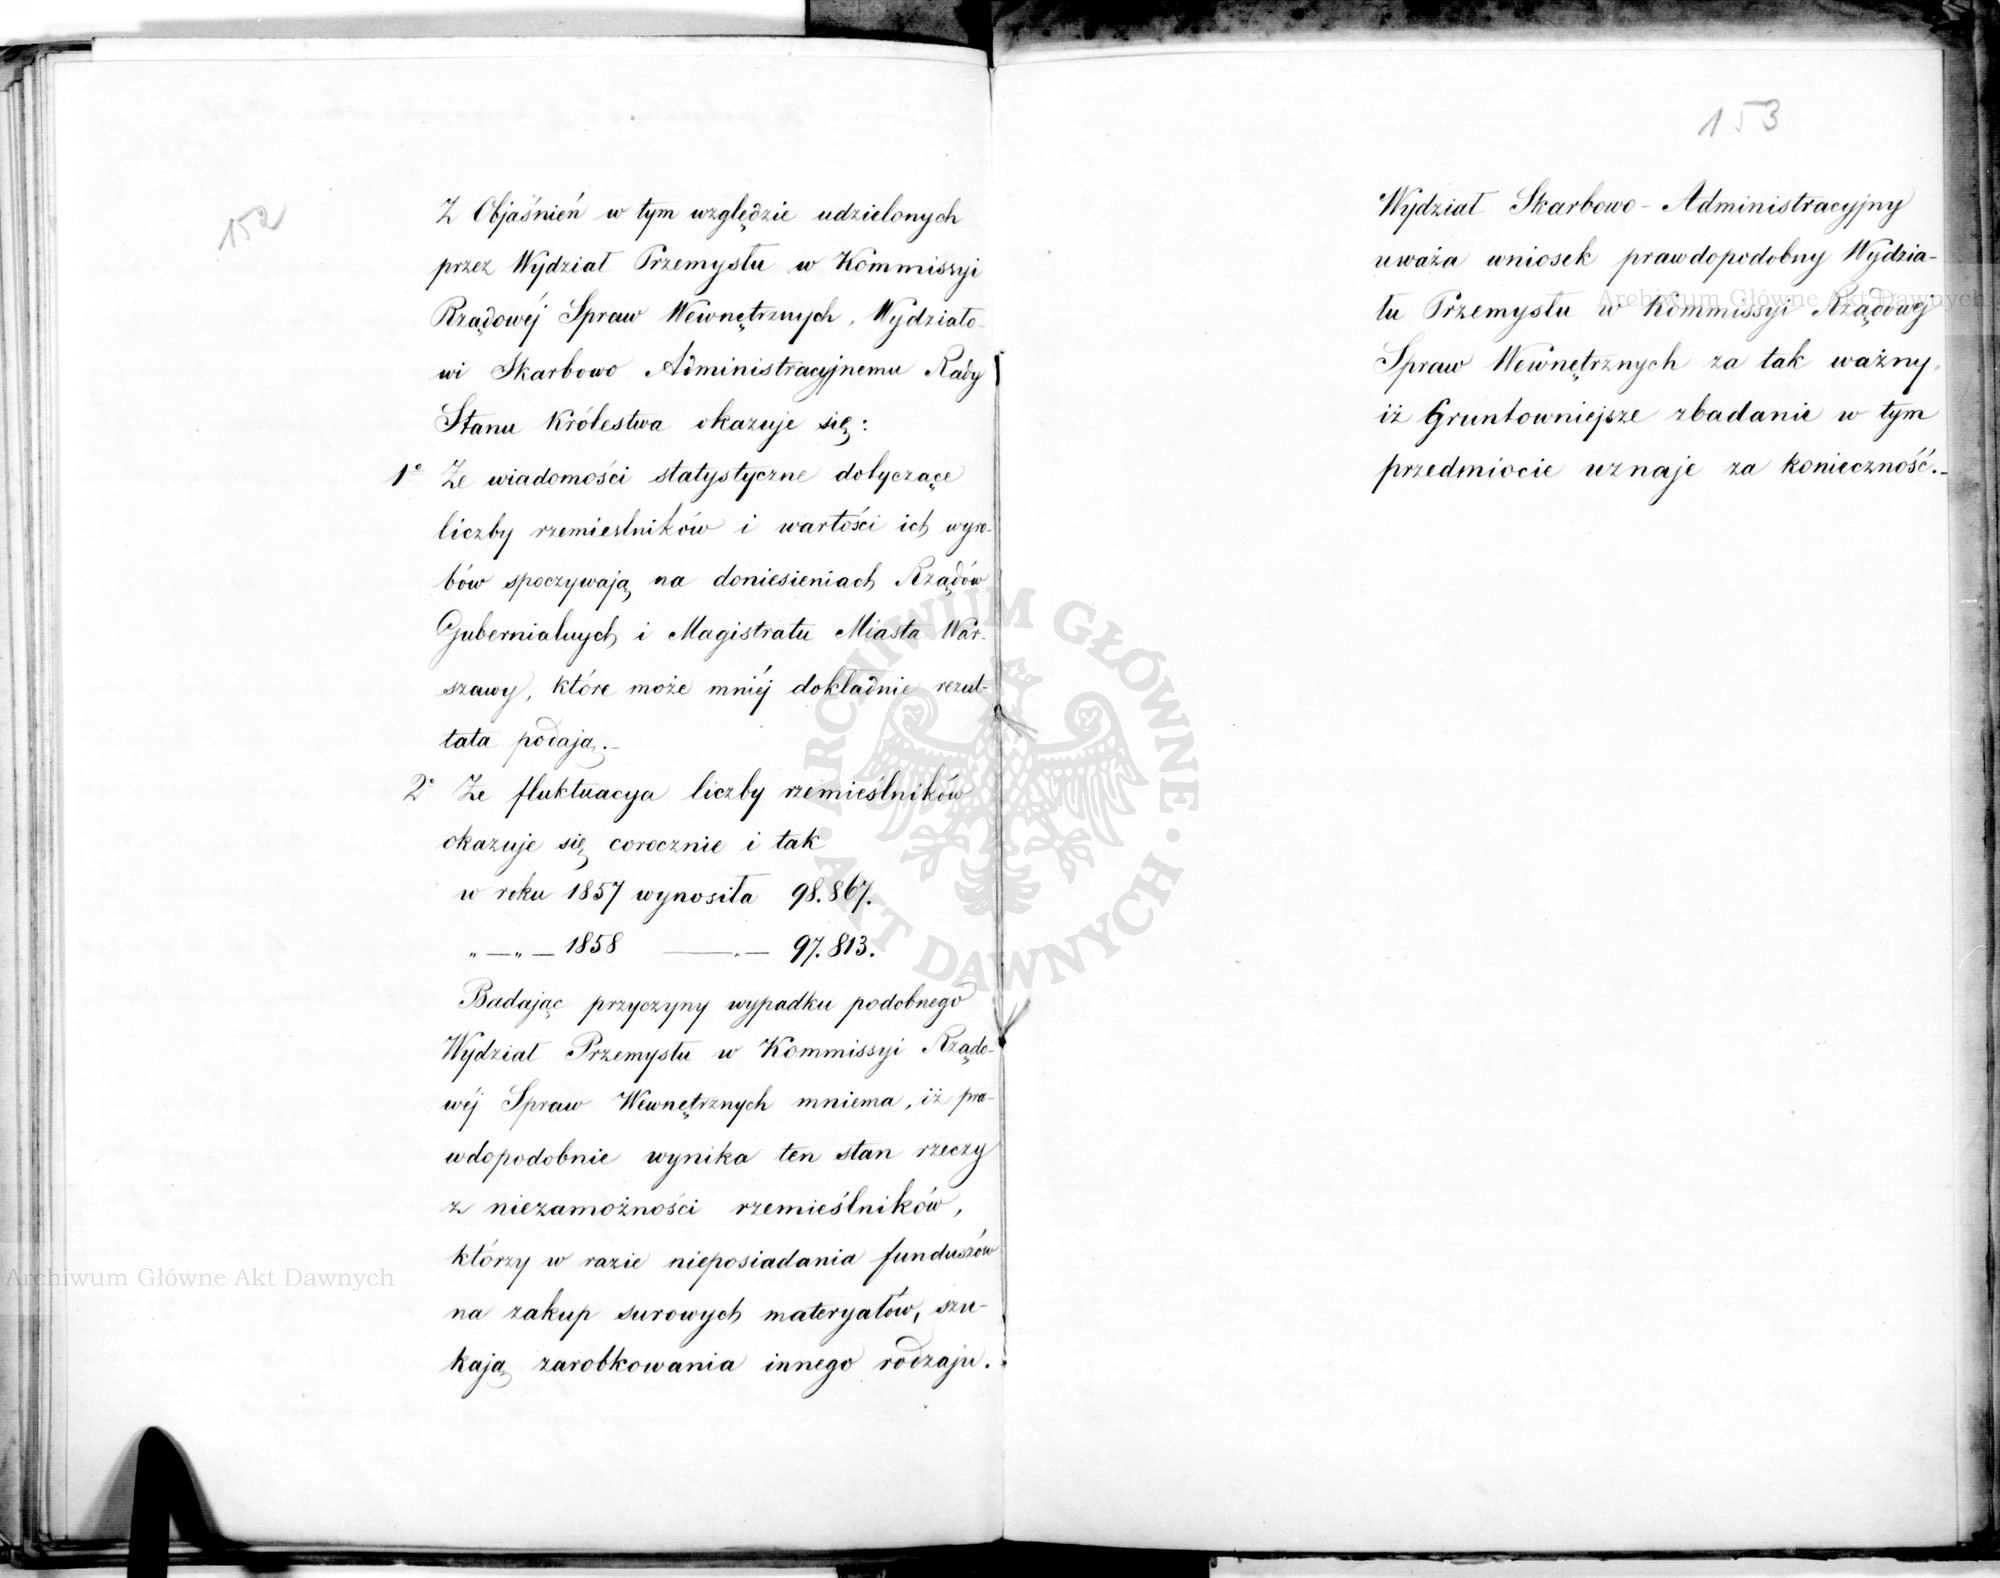 152
Z Objaśnień w tym względzie udzielonych
przez Wydział Przemysłu w Kommissyi
Rządowéj Spraw Wewnętrznych, Wydziało-
wi Skarbowo Administracyjnemu Rady
Stanu Królestwa okazuje się:
1° Że wiadomości statystyczne dotyczące
liczby rzemieślników i wartości ich wyro-
bów spoczywają na doniesieniach Rządów
Gubernialnych i Magistratu Miasta War-
szawy, które może mniéj dokładnie rezul-
tata podają.-
2° Że fluktuacya liczby rzemieślników
okazuje się corocznie i tak
w roku 1857 wynosiła 98.867.
„—„— 1858 —„— 97.813.
Badając przyczyny wypadku podobnego
Wydział Przemysłu w Kommissyi Rządo-
wéj Spraw Wewnętrznych mniema, iż pra-
wdopodobnie wynika ten stan rzeczy
z niezamożności rzemieślników,
którzy w razie nieposiadania funduszów
na zakup surowych materyałów, szu-
kają zarobkowania innego rodzaju.
153
Wydział Skarbowo-Administracyjny
uważa wniosek prawdopodobny Wydzia-
łu Przemysłu w Kommissyi Rządowej
Spraw Wewnętrznych za tak ważny,
iż Gruntowniejsze zbadanie w tym
przedmiocie uznaje za konieczność.-
Archiwum Główne Akt Dawnych
ARCHIWUM GŁÓWNE
AKT DAWNYCH
Archiwum Główne Akt Dawnych